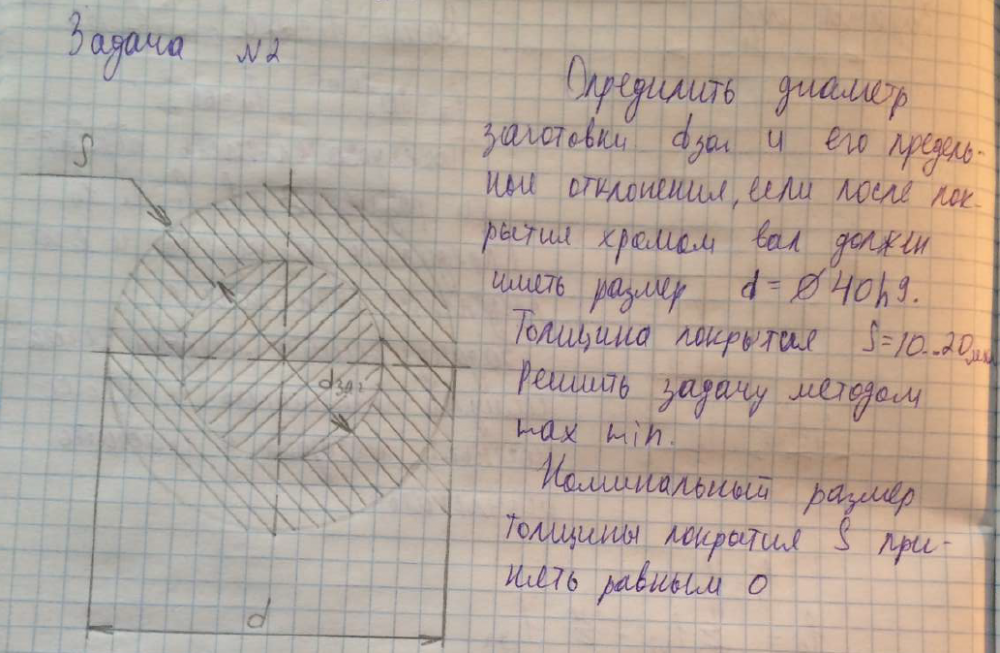 Задача №2
Опредилить диаметр
заготовки dзаг и его предель-
ное отклонения, если после пок-
рытия хромом вал должен
иметь размер d = Ø 40h9.
Толщина покрытия S=10..20мкм
Решить задачу методом
max min.
Номинальный размер
толщины покрытия S при-
нять равным 0
S
dзаг
d